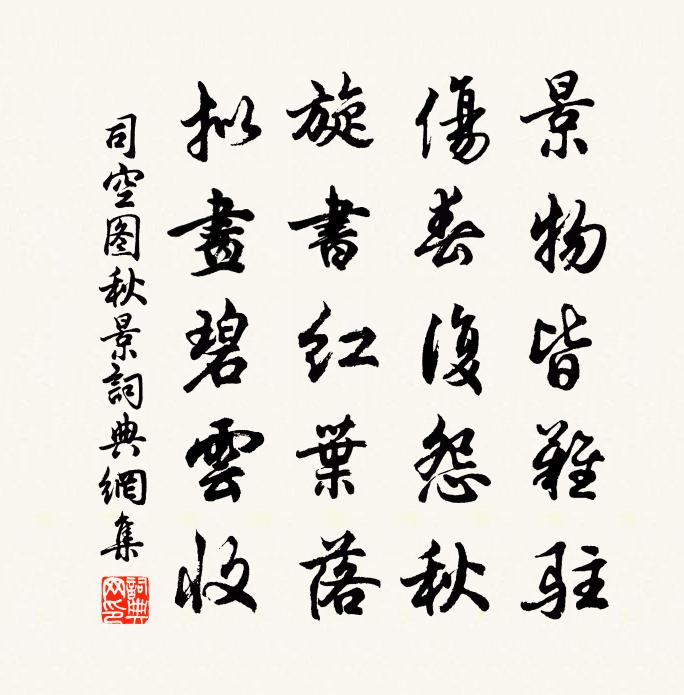 景物皆難駐
傷春復怨秋
旋書紅葉落
拟畫碧雲收
司空图秋景詞典網集
詞典网印